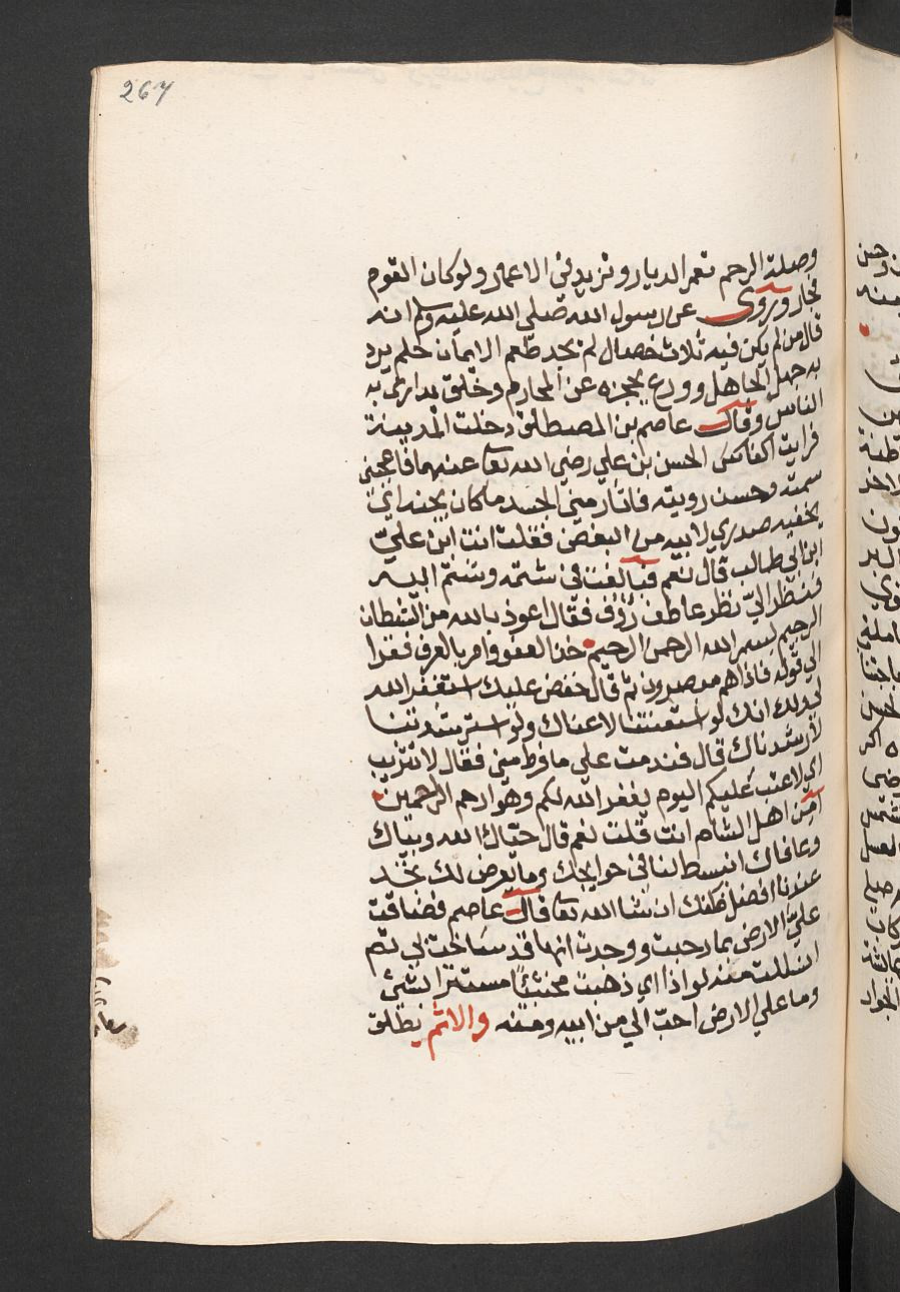 267
وصلة الرحم تعمر الديار وتزيد في الاعمار ولو كان القوم
فجار وروى عن رسول الله صلى الله عليه وسلم انه
قال من لم يكن فيه ثلاث خصال لم يجد طعم الايمان حلم يرد
به جهل الجاهل وورع يحجزه عن المحارم وخلق يدارى به
الناس وقال عاصم بن المصطلق دخلت المدينة
فرايت الحسن بن علي رضي الله تعا عنهما فاعجبني
سمته وحسن رويته فاثار مني الحسد ما كان يجنه اي
يخفيه صدري لابيه من البغض فقلت انت ابن علي
ابن ابي طالب قال نعم فبالغت في شتمه وشتم ابيه
فنظر اليّ نظر عاطف رؤف فقال اعوذ بالله من الشيطان
الرجيم بسم الله الرحمن الرحيم خذ العفو وامر بالعرف فقرا
الي قوله فاذا هم مبصرون ثم قال خفض عليك استغفر الله
لي ولك انك لو استعنتنا لاعناك ولو استرشدتنا
لارشدناك قال فندمت علي ما فرط مني فقال لا تثريب
اي لا عتب عليكم اليوم يغفر الله لكم وهو ارحم الرحمين
امن اهل الشام انت قلت نعم قال حياك الله وبياك
وعافاك انبسط لنا في حوايجك وما يعرض لك تجد
عندنا افضل ظنك ان شا الله تعا قال عاصم فضاقت
عليّ الارض بما رحبت ووددت انها قد ساخت بي ثم
انسللت منه لواذا اي ذهبت مختبئا مستترا بشئ
وما علي الارض احبّ الي من ابيه ومنه والاثم يطلق